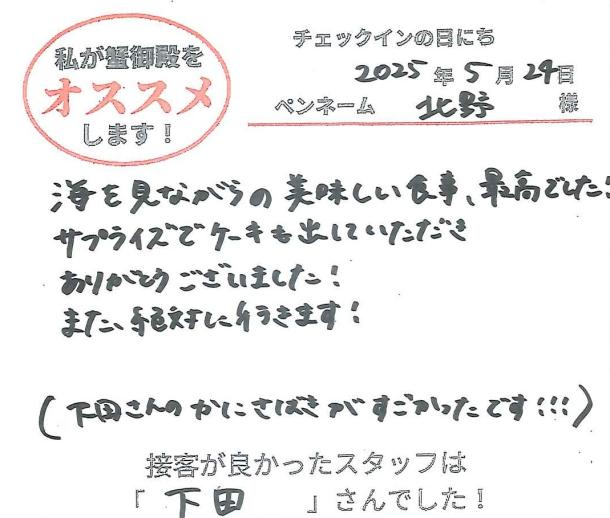 私が蟹御殿を
オススメ
します！
チェックインの日にち
2025年5月24日
ペンネーム 北野 様
海を見ながらの美味しい食事、最高でした!
サプライズでケーキも出していただき
ありがとうございました！
また、絶対に行きます！
(下田さんのかにさばきがすごかったです!!!)
接客が良かったスタッフは
「下田」さんでした！